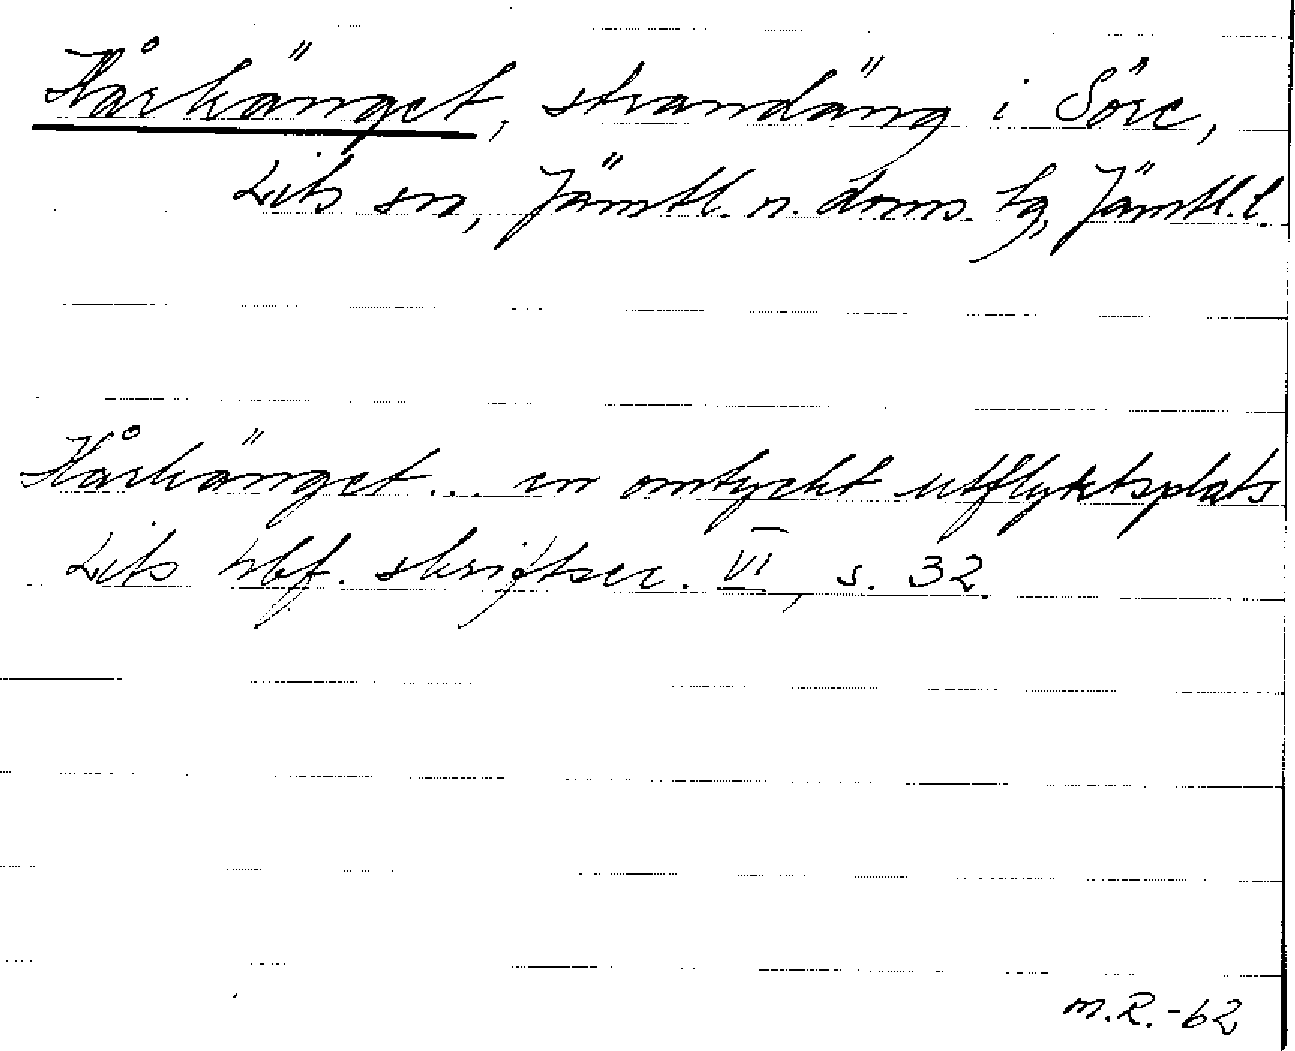 Hårkänget, strandäng i Söre,
Lits sn, Jämtl. n. doms. tg, Jämtl. l.
Hårkänget... en omtyckt utflyktsplats
Lits hbf. skriftser. VI, s. 32.
M.R.-62